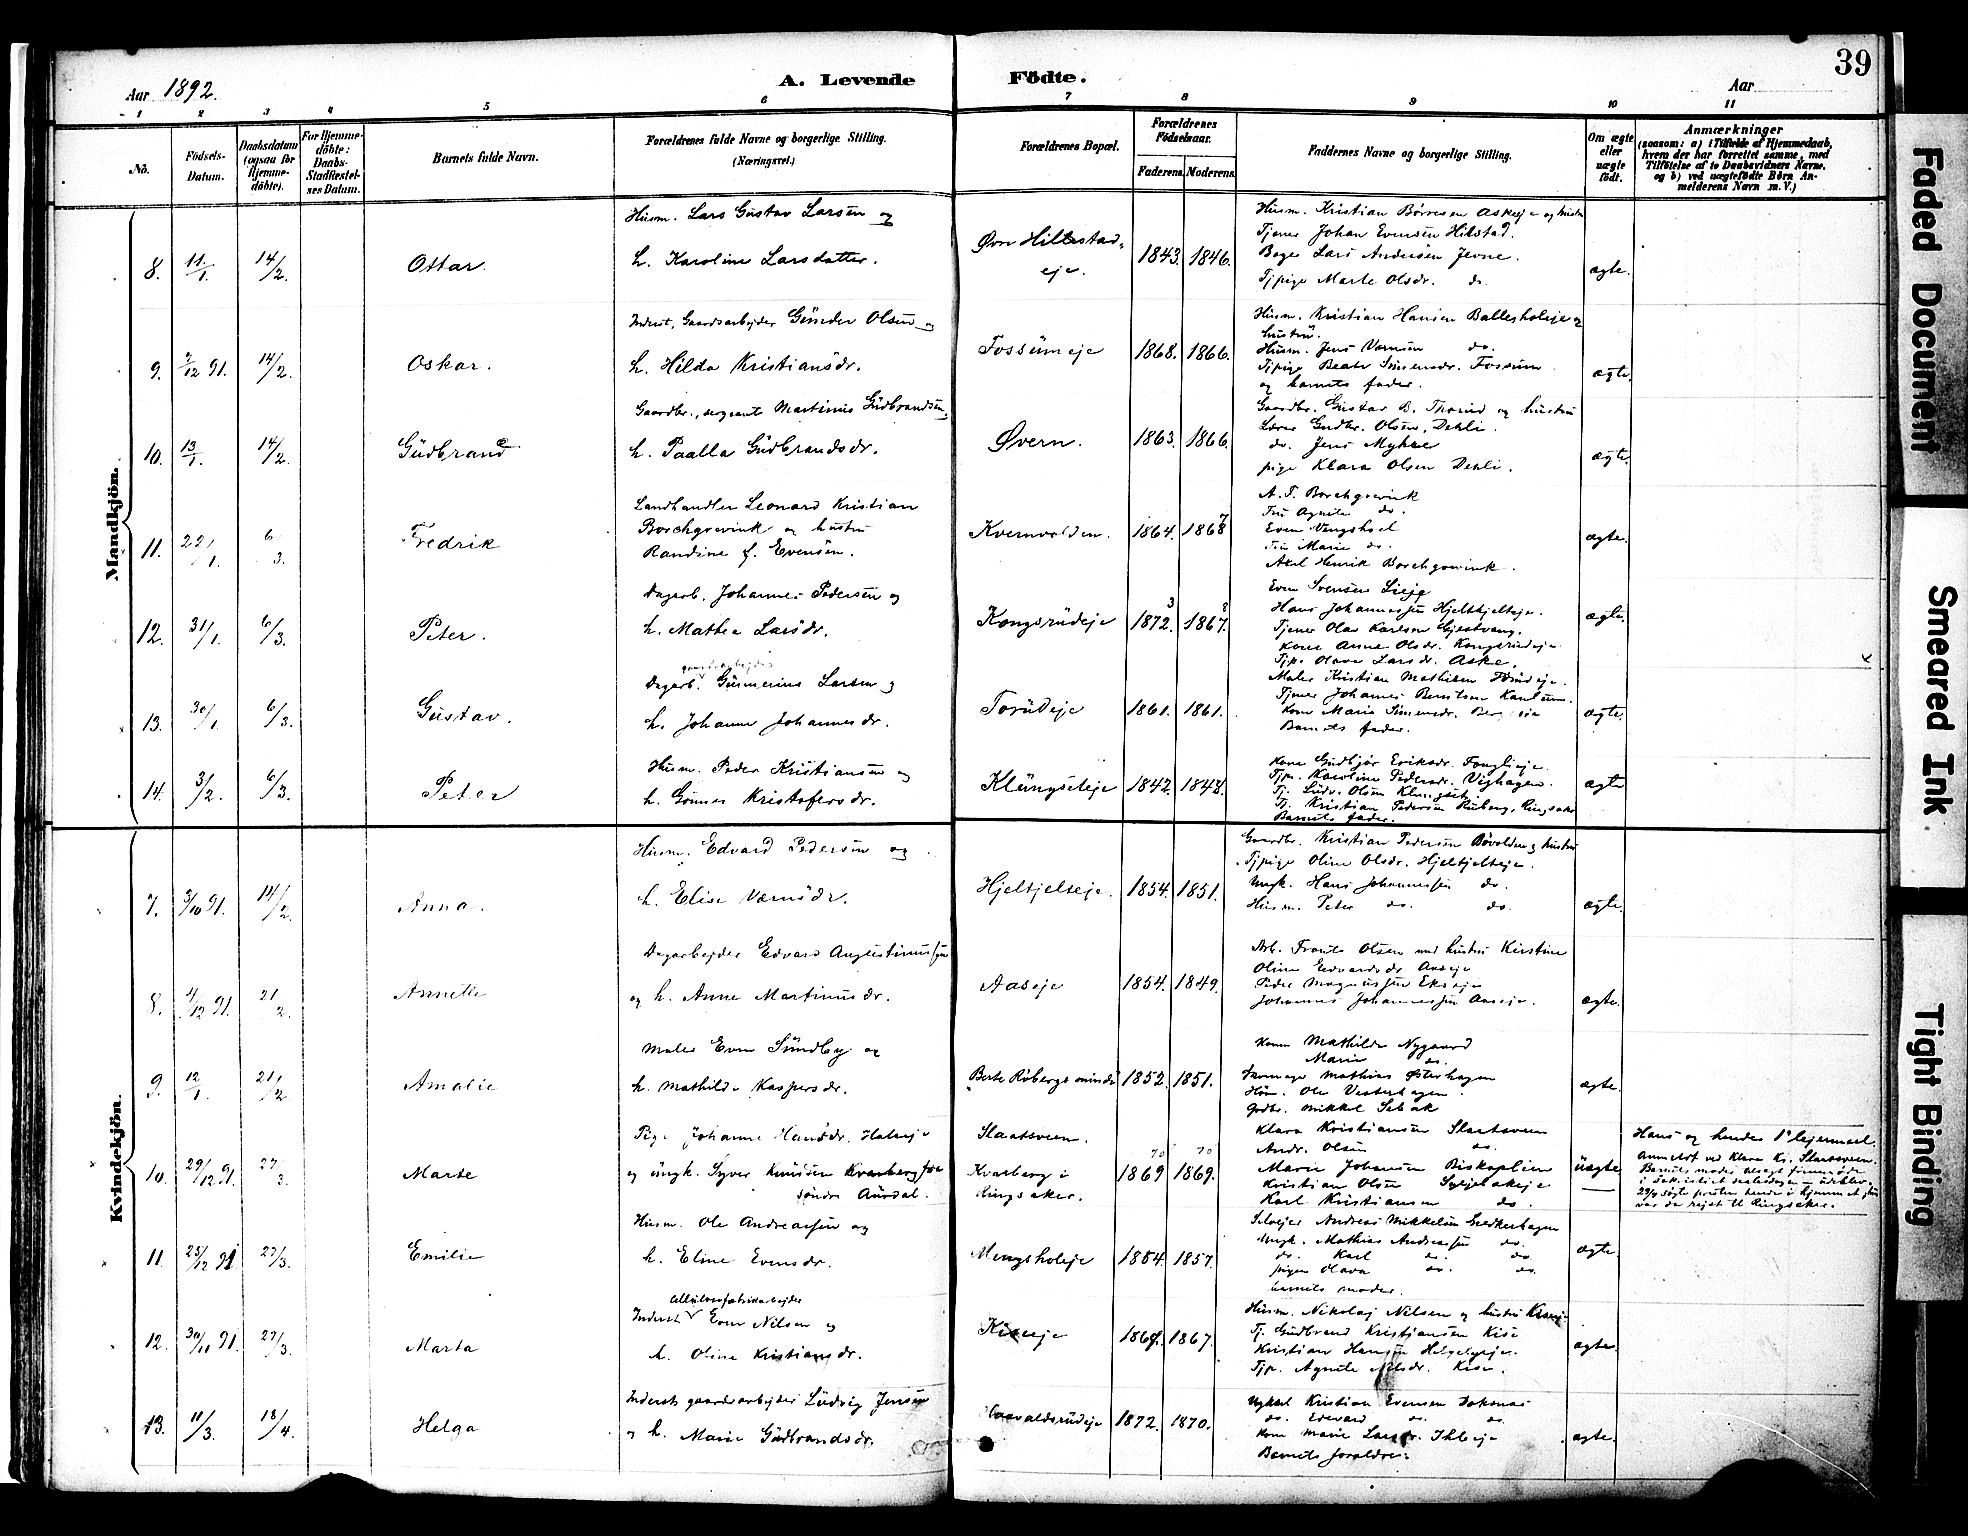 39
Aar 1892.
A. Levende Födte.
Aar
1 2 3 4 5 6 7 8 9 10 11
No.
Födsels-Datum.
Daabsdatum (ogsaa for Hjemme-döbte).
For Hjemme-döbte: Daabs-Stadfæstel-ses Datum.
Barnets fulde Navn.
Forældrenes fulde Navne og borgerlige Stilling.
(Næringsvei.)
Forældrenes Bopæl.
Forældrenes Födselsaar.
Faderens. Moderens.
Faddernes Navne og borgerlige Stilling.
Om ægte eller uægte födt.
Anmærkninger
(saasom: a) i Tilfælde af Hjemmedaab,
hvem der har forrettet samme, med
Tilföielse af to Daabsvidners Navne.
og b) ved uægtefödte Börn An-
melderens Navn m. V.)
Mandkjön.
8. 11/1. 14/2. Ottar.
Husm. Lars Gustav Larsen og
h. Karoline Larsdatter.
Øvre Hillestad-
eje.
1843. 1846.
Husm. Kristian Børresen Askeje og hustru
Tjener Johan Evensen Hilstad.
Lars Andersen Jevne.
Tjpige Marte Olsdr. do
ægte.
9. 2/12 91. 14/2. Oskar.
Inderst, Gaardsarbejder Günder Olsen og
h. Hilda Kristiansdr.
Fossumeje 1868. 1866.
Husm. Kristian Hansen Balleshøleje og
hustru.
Husm. Jens do
Tjpige Beate Simensdr. Fossum
og barnets fader.
ægte.
10. 13/1. 14/2. Gudbrand
Gaardbr., sergeant Martinus Gudbrandsen,
h. Paalla Gudbrandsdr.
Øvern. 1863. 1866.
Gaardbr. Gustav B. Thorud og hustru
Lærer Gudbr. Olsen, Dehli.
do. Jens Myhre
pige Klara Olsen Dehli.
ægte.
11. 22/1. 6/3. Fredrik
Landhandler Leonard Kristian
Borchgrevink og hustru
Randine f. Evensen.
Kvernvolden. 1864. 1868 7
A. F. Borchgrevink
Fru Agnete do.
Even Vengshoel
Fru Marie do.
Axel Henrik Borchgrevink.
ægte.
12. 31/1. 6/3. Peter.
Dagarb. Johannes Pedersen og
h. Mathea Larsdr.
Kongsrudeje 1872. 3 1867. 8
Even Svensen Lieje
Hans Johannessen Hjeltjelteje.
Tjener Olav Karlsen Gjestvang.
Kone Anne Olsdr. Kongsrudeje
Tjp. Olava Larsdr. Aske.
ægte.
13. 30/1. 6/3. Gustav.
gaardsarbejder
Dagarb. Gunerius Larsen og
h. Johanne Johannesdr.
Torudeje 1861. 1861.
Maler Kristian Mathisen
Tjener Johannes Berntsen
Kone Marie Simensdr.
Barnets fader.
ægte.
14. 3/2. 6/3. Peter
Husm. Peder Kristiansen og
h. Gunnor Kristofersdr.
Klungseteje 1842. 1848.
Kone Gudbjør Eriksdr.
Tjp. Karoline Pedersdr. Vighagen.
Tj. Ludv. Olsen Klungset.
Tj. Kristian Pedersen Ruberg, Ringsaker
Barnets fader.
ægte
Kvindekjön.
7. 3/10 91. 14/2. Anna.
Husm. Edvard Pedersen og
h. Elise Værnsdr.
Hjeltjelteje. 1854. 1851.
Gaardbr. Kristian Pedersen Bøvolden og hustru
Tjpige Oline Olsdr. Hjeltjelteje.
Ungk. Hans Johannessen do.
Husm. Peter do. do.
ægte.
8. 4/12 91. 21/2. Annette
Dagarbejder Edvard Augustinussen
og h. Anne Martinusdr.
Aaseje 1854. 1849.
Arb. Frants Olsen med hustru Kirstine
Oline Edvardsdr Aaseje
Peder Magnussen Ekseje
Johannes Johannessen Aaseje.
ægte.
9. 12/1. 21/2 Amalie
Maler Even Sundby og
h. Mathilde Kaspersdr.
Berte Røbergs minde 1852. 1851.
Kone Mathilde Nygaard
Marie do.
Mathias Østerhagen
Ole Vesterhagen.
Gdbr. Mikkel Sebak
ægte.
10. 29/12 91. 27/3. Marte
Pige Johanne Hansdr.
og ungk. Syver Knudsen Kvarberg fra
søndre Aurdal.
Slaatsveen.
Kvarberg i
Ringsaker.
70 70
1869 1869.
Klara Kristiansen Slaatsveen
Andr. Olsen do.
Marie Johansen Biskoplien
Kristian Olsen
Karl Kristiansen do.
uægte
Hans og hendes 1ste lejermaal.
Anmeldt ved Klara Kr. Slaatsveen.
var da rejst til Ringsaker.
11. 23/12 91 27/3. Emilie
Husm. Ole Andreassen og
h. Eline Evensdr.
Mengsholeje 1854. 1857.
Selvejer Andreas Mikkelsen
Ungk. Mathias Andreassen do.
do. Karl do. do.
pigen Olava do. do.
barnets moder.
ægte.
12. 30/11 91. 27/3. Marta
Inderst Even Nilsen og
h. Oline Kristiansdr.
Kiseeje 1867.
Husm. Nikolaj Nilsen og hustru Kiseeje
Tj. Gudbrand Kristiansen Kise
Kristian Hansen
Tjp. Agnete Nilsdr. Kise.
ægte.
13. 11/3. 18/4. Helga
Inderst gaardsarbejder Ludvig Jensen
og h. Marie Gudbrandsdr.
1872. 1870.
Ungkarl Kristian Evensen
do. Edvard do. do.
Kone Marie Larsdr. Ihleeje
Barnets forældre.
ægte.
Faded Document
Smeared Ink
Tight Binding